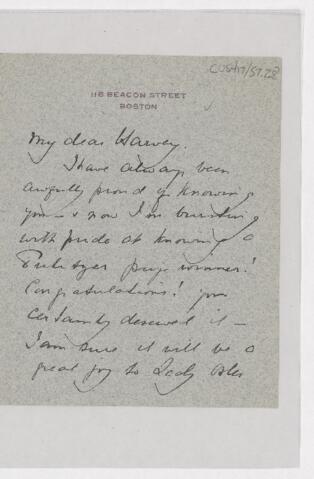 CUS417/57.28
116 BEACON STREET
BOSTON
My dear Harvey.
I have always been
awfully proud of knowing
you - & now I'm bursting
with pride at knowing a
Pulitzer prize winner!
Congratulations! you
certainly deserved it -
I am sure it will be a
great joy to Lady Osler